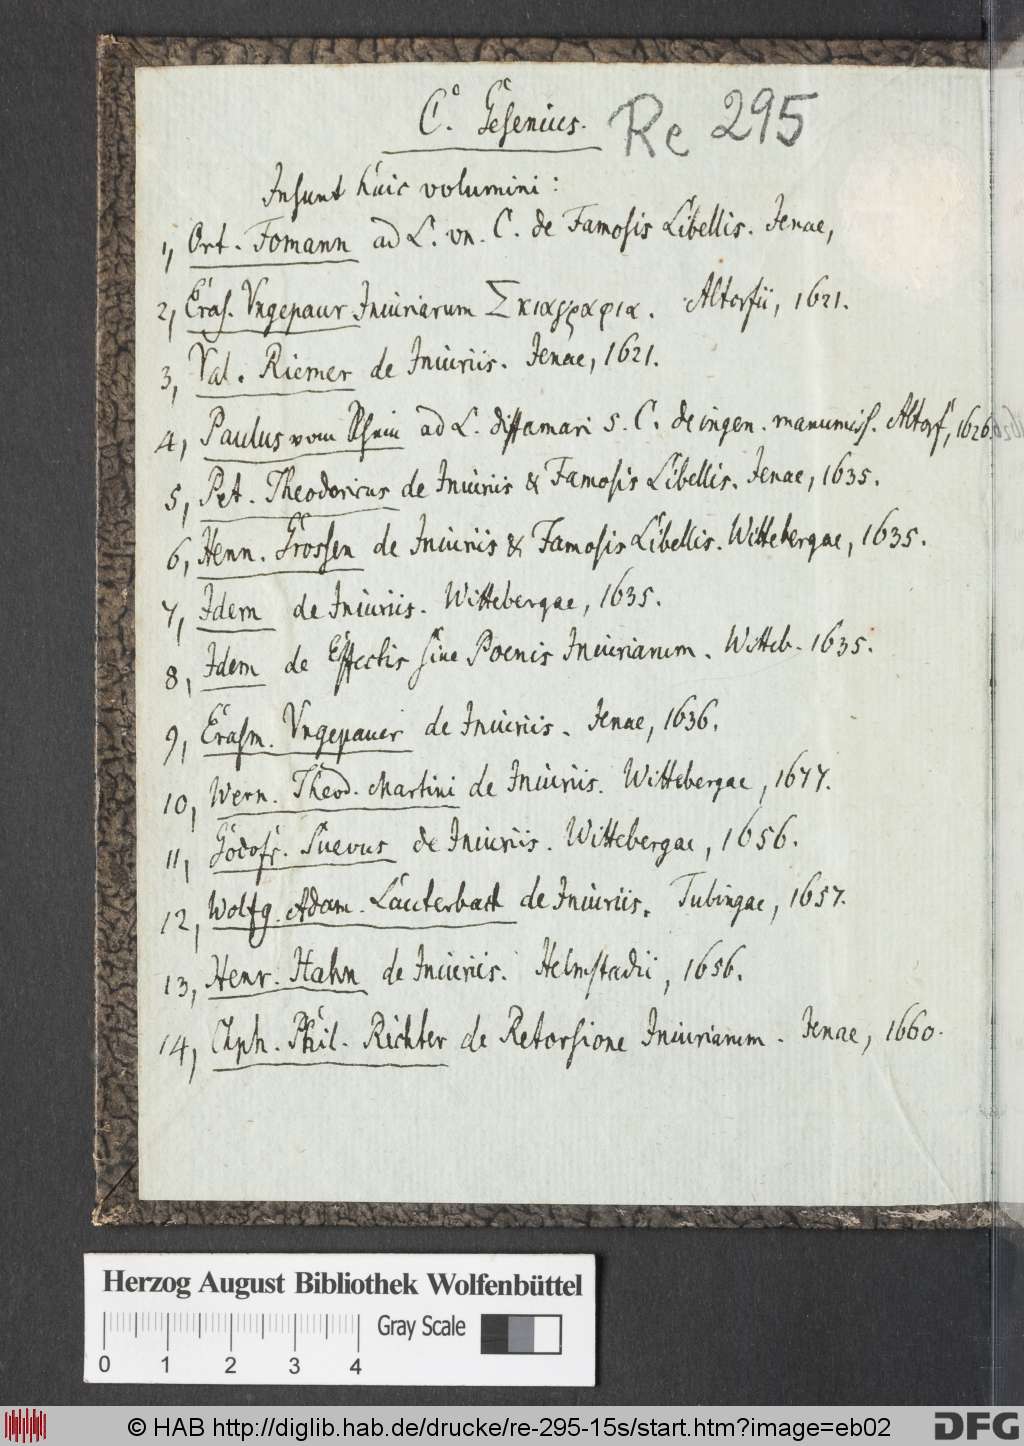 C. Gesenius.
Re 295
Insunt huic volumini:
1, Ort. Fomann ad L. vn. C. de Famosis Libellis. Jenae,
2, Eras. Vngepaur Iniuriarum Σκιαγραφια. Altorfii, 1621.
3, Val. Riemer de Iniuriis. Jenae, 1621.
4, Paulus vom ad L. diffamari 5. C. de ingen. manumiss. Altorf, 1626.
5, Pet. Theodoricus de Iniuriis & Famosis Libellis. Jenae, 1635.
6, Henn. Grossen de Iniuriis & Famosis Libellis. Wittebergae, 1635.
7, Idem de Iniuriis. Wittebergae, 1635.
8, Idem de Effectis sine Poenis Iniuriarum. Witteb. 1635.
9, Erasm. Vngepauer de Iniuriis. Jenae, 1636.
10, Wern. Theod. Martini de Iniuriis. Wittebergae, 1677.
11, Godofr. Suevus de Iniuriis. Wittebergae, 1656.
12, Wolfg. Adam. Lauterbach de Iniuriis. Tubingae, 1657.
13, Henr. Hahn de Iniuriis. Helmstadii, 1656.
14, Chph. Phil. Richter de Retorsione Iniuriarum. Jenae, 1660.
Herzog August Bibliothek Wolfenbüttel
Gray Scale
0 1 2 3 4
© HAB http://diglib.hab.de/drucke/re-295-15s/start.htm?image=eb02
DFG